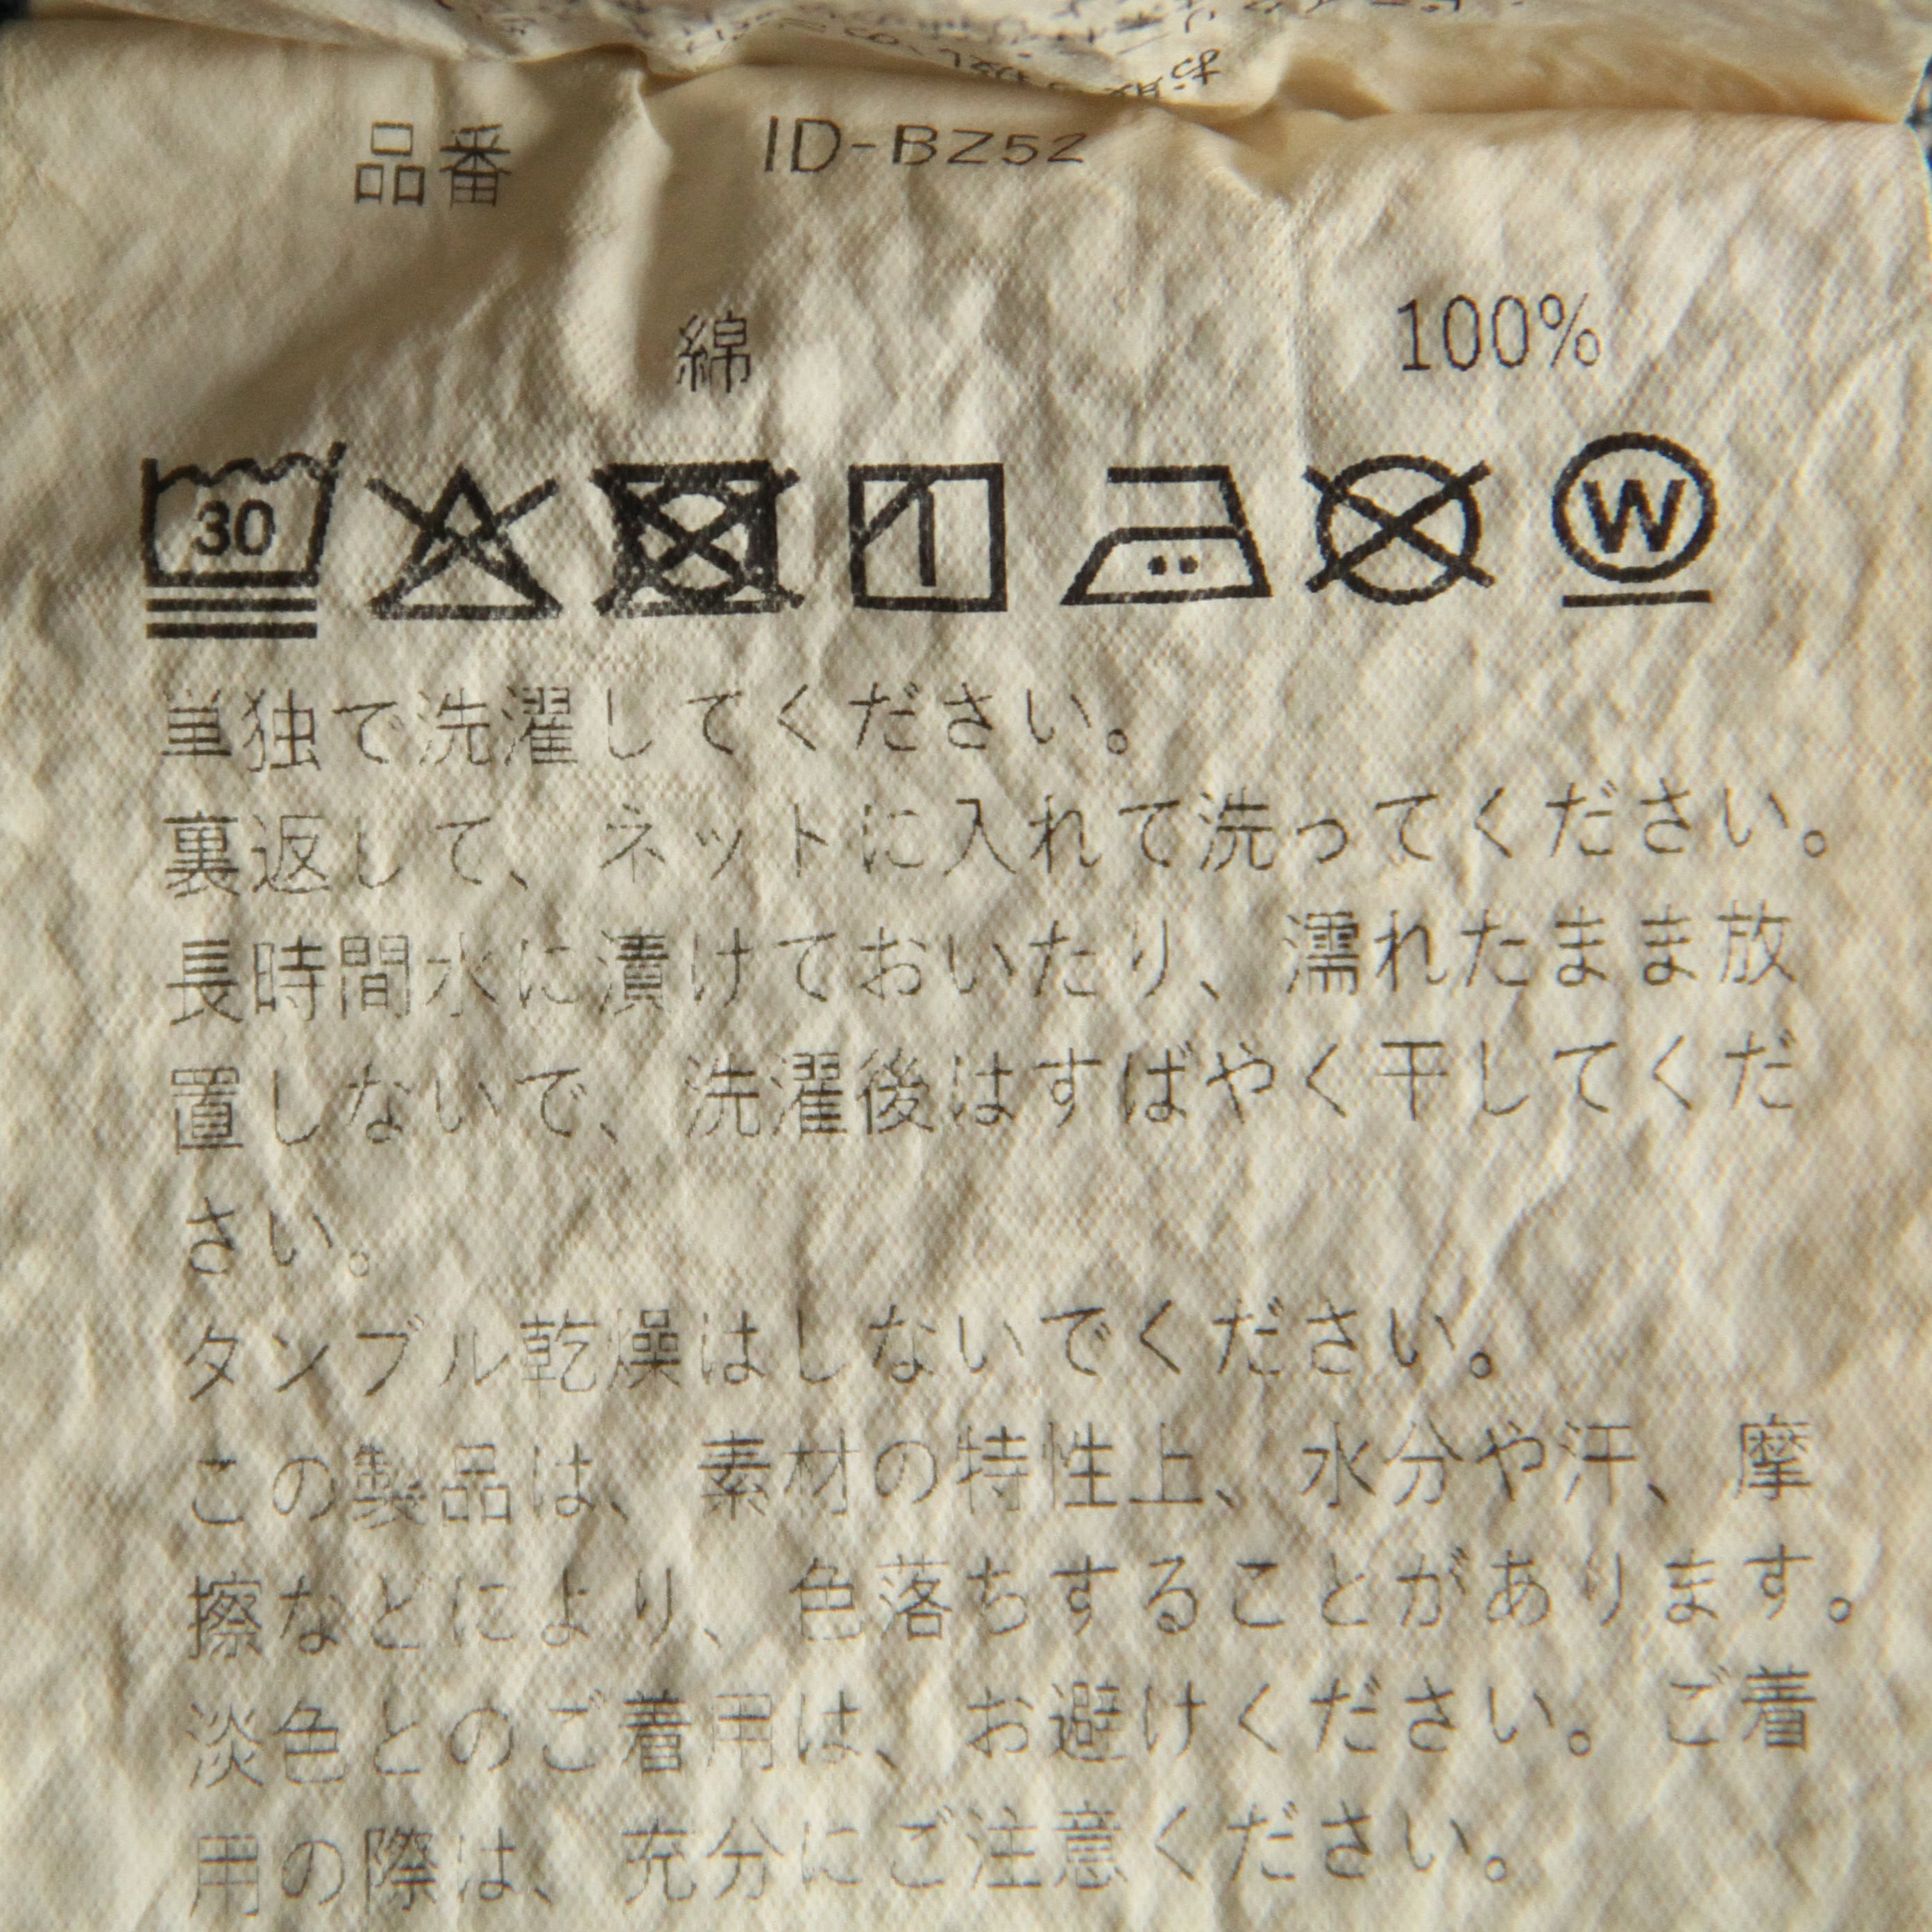 品番 ID-BZ52
綿 100%
30
W
単独で洗濯してください。
裏返して、ネットに入れて洗ってください。
長時間水に漬けておいたり、濡れたまま放
置しないで、洗濯後はすばやく干してくだ
さい。
タンブル乾燥はしないでください。
この製品は、素材の特性上、水分や汗、摩
擦などにより、色落ちすることがあります。
淡色とのご着用は、お避けください。ご着
用の際は、充分にご注意ください。